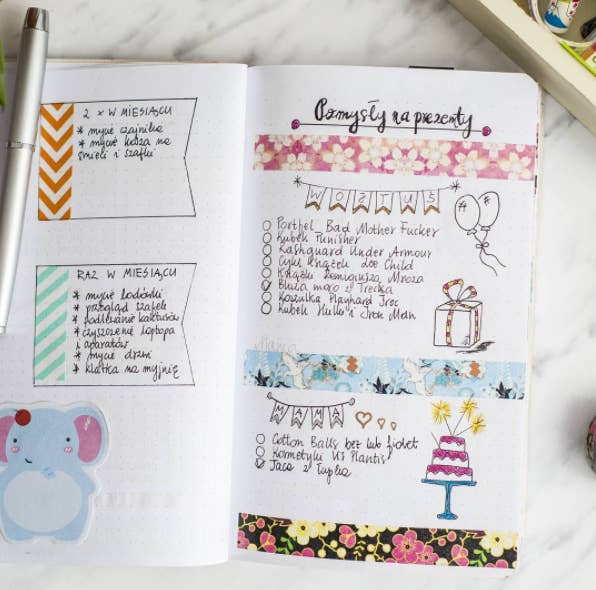 2 x W MIESIĄCU
* mycie czajnika
* mycie kosza na
śmieci i szafki
RAZ W MIESIĄCU
* mycie lodówki
* przegląd szafek
* podlewanie kaktusów
* czyszczenie laptopa
i aparatów
* mycie drzwi
* klatka na myjnię
Pomysły na prezenty
WOJTUŚ
Portfel Bad Mother Fucker
Kubek Punisher
Rashguard Under Armour
Cykl książek Lee Child
Książki Remigiusza Mroza
Bluza moro z Trecka
Koszulka Playhard Jroc
Kubek Hulk i Iron Man
MAMA
Cotton Balls beż lub fiolet
Kosmetyki Vis Plantis
Taca z Tupka